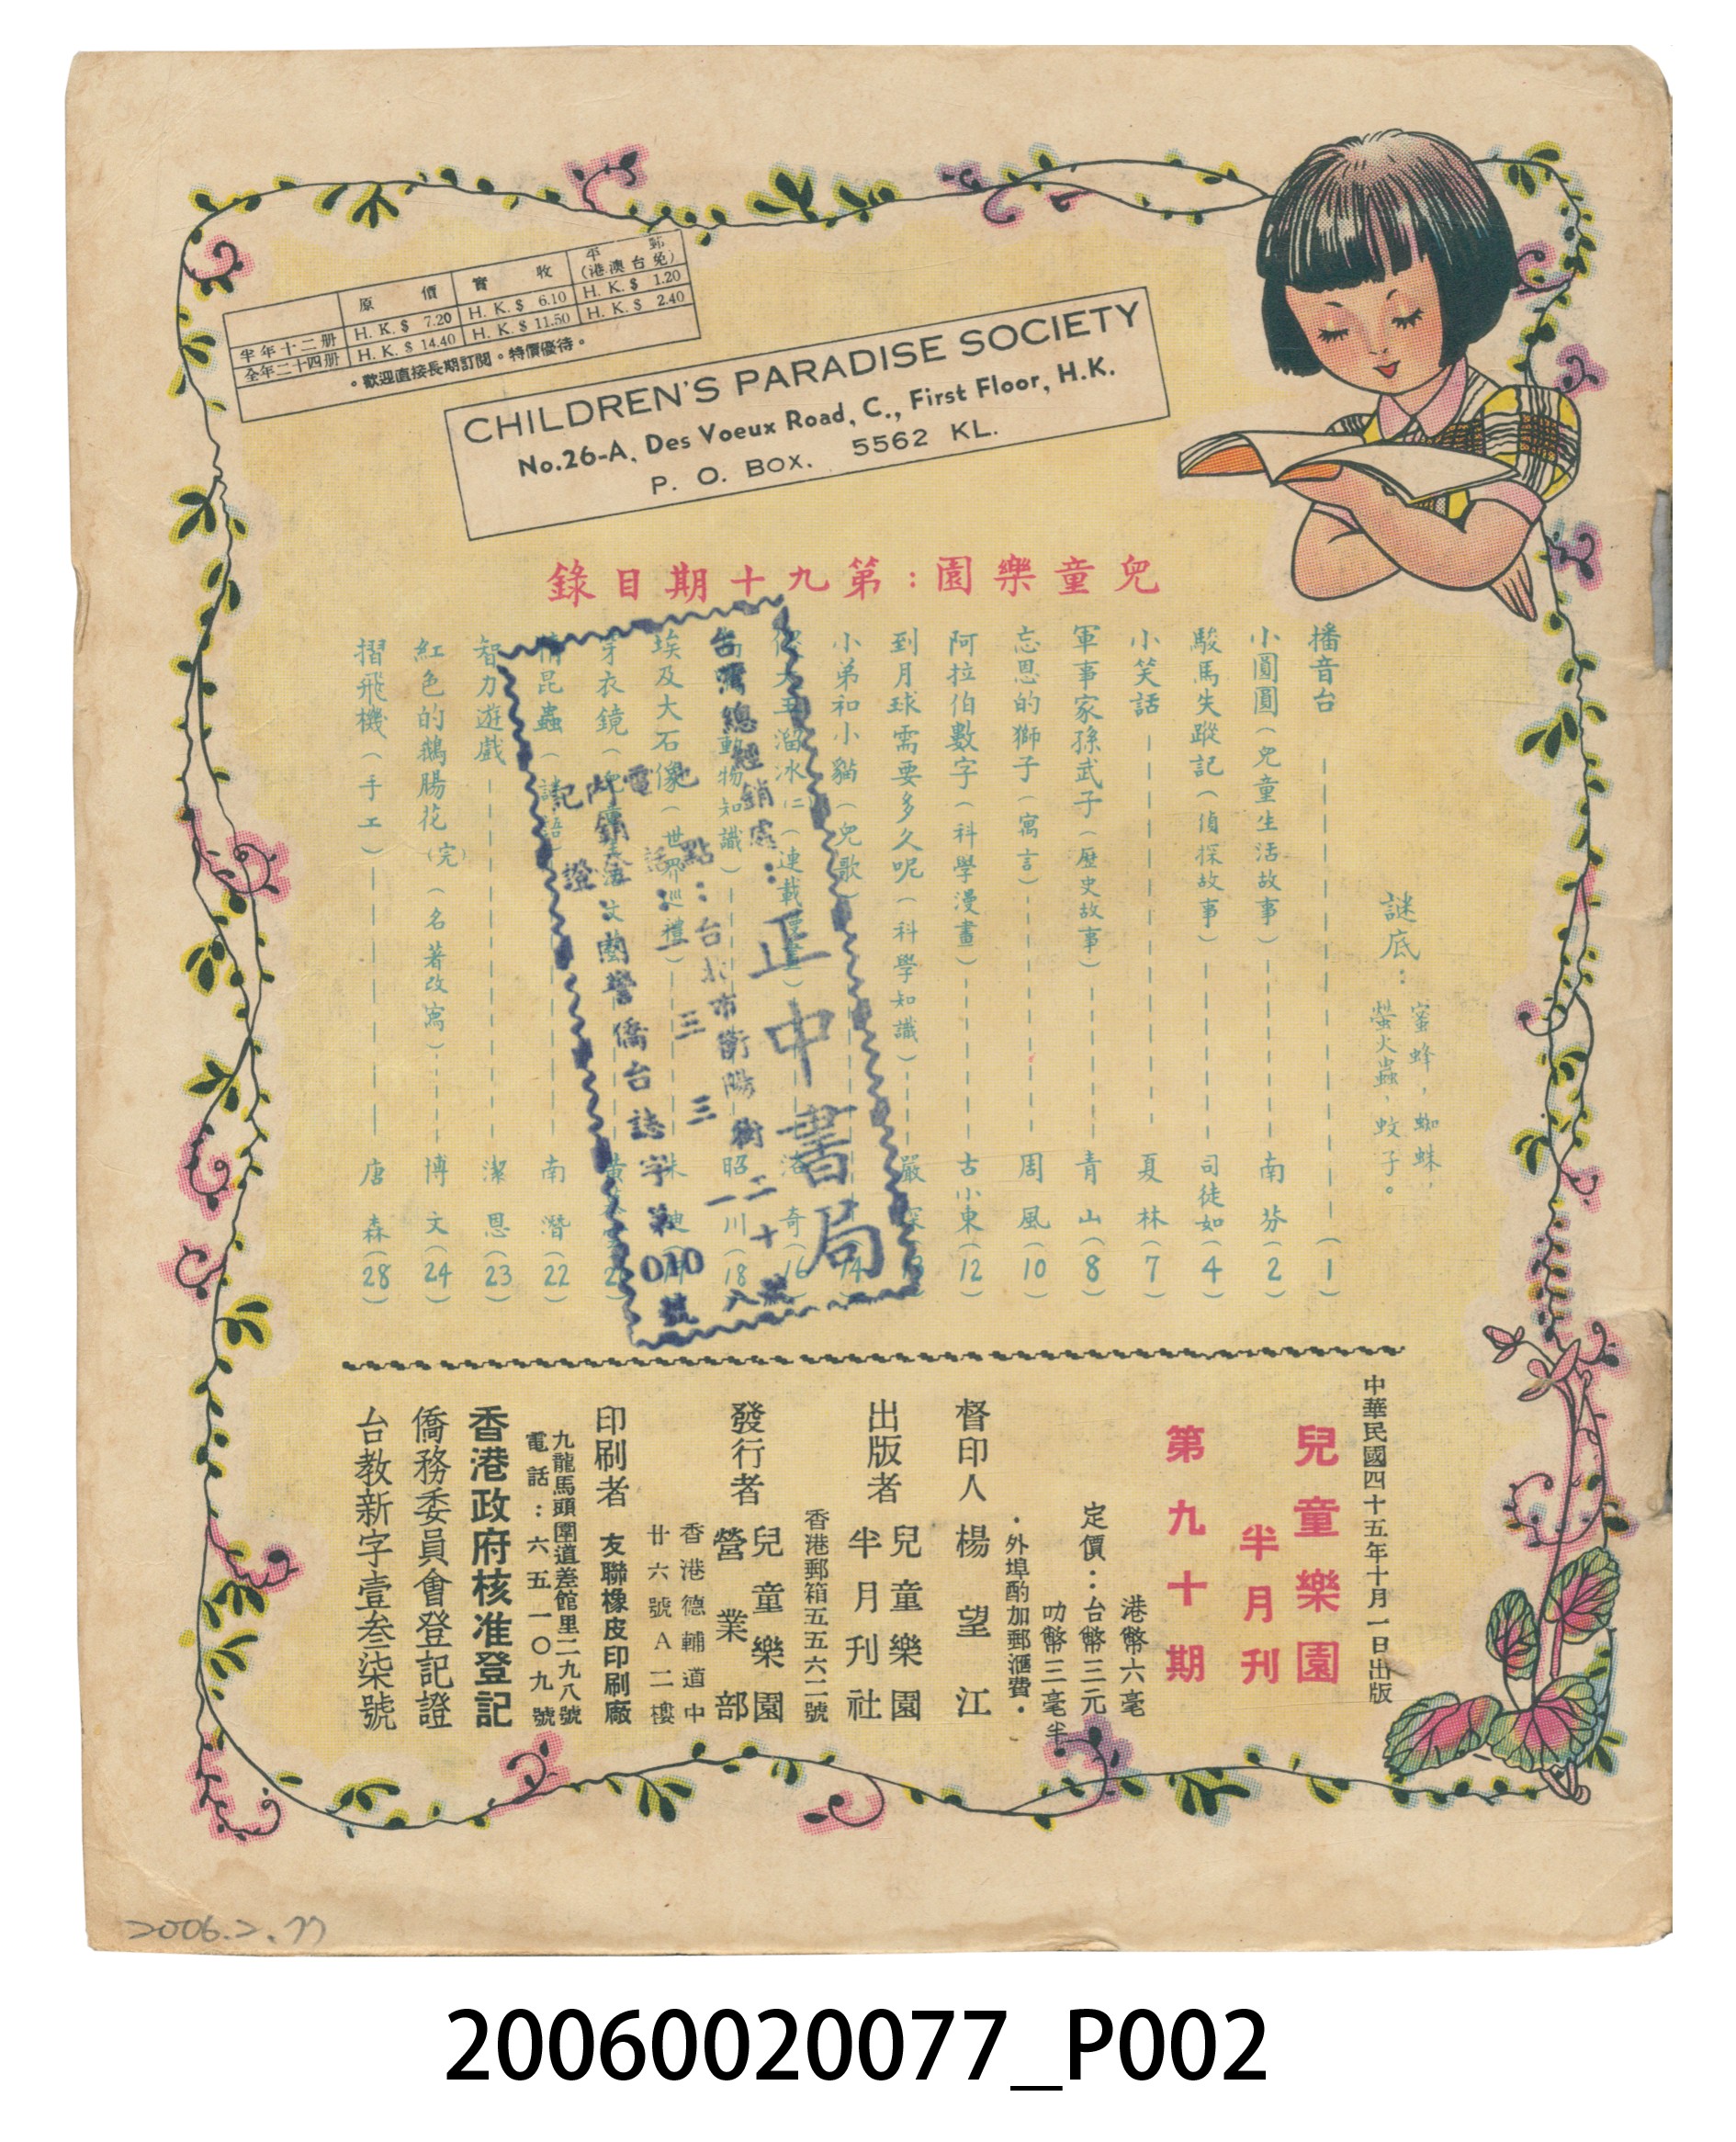 原價 實收 平郵(港澳台免)
半年十二册 H. K. $ 7.20 H. K. $ 6.10 H. K. $ 1.20
全年二十四册 H. K. $ 14.40 H. K. $ 11.50 H. K. $ 2.40
。歡迎直接長期訂閱。特價優待。
CHILDREN'S PARADISE SOCIETY
No.26-A, Des Voeux Road, C., First Floor, H.K.
P. O. Box. 5562 KL.
兒童樂園:第九十期目錄
謎底:
蜜蜂,蜘蛛,
螢火蟲,蚊子。
播音台(1)
小圓圓(兒童生活故事)南芬(2)
駿馬失蹤記(偵探故事)司徒如(4)
小笑話 夏林(7)
軍事家孫武子(歷史故事)青山(8)
忘恩的獅子(寓言)周風(10)
阿拉伯數字(科學漫畫)古小東(12)
到月球需要多久呢(科學知識)嚴深(13)
小弟和小貓(兒歌)(14)
大王溜冰(連載)洛奇(16)
動物知識)昭川(18)
埃及大石像(世界巡禮)
穿衣鏡
猜昆蟲(謎語)南潛(22)
智力遊戲 潔恩(23)
紅色的鵝腸花(完)(名著改寫)博文(24)
摺飛機(手工)唐森(28)
台灣總經銷處:正中書局
地點:台北市衡陽街二十號
電話:二三三一八
內銷證:內警僑台誌字第010號
中華民國四十五年十月一日出版
兒童樂園
半月刊
第九十期
港幣六毫
定價:台幣三元
叻幣三毫半
·外埠酌加郵滙費·
督印人 楊望江
出版者 兒童樂園半月刊社
香港郵箱五五六二號
發行者 兒童樂園營業部
香港德輔道中
廿六號A二樓
印刷者 友聯橡皮印刷廠
九龍馬頭圍道差館里二九八號
電話:六五一〇九號
香港政府核准登記
僑務委員會登記證
台教新字壹叁柒號
2006.2.77
20060020077_P002